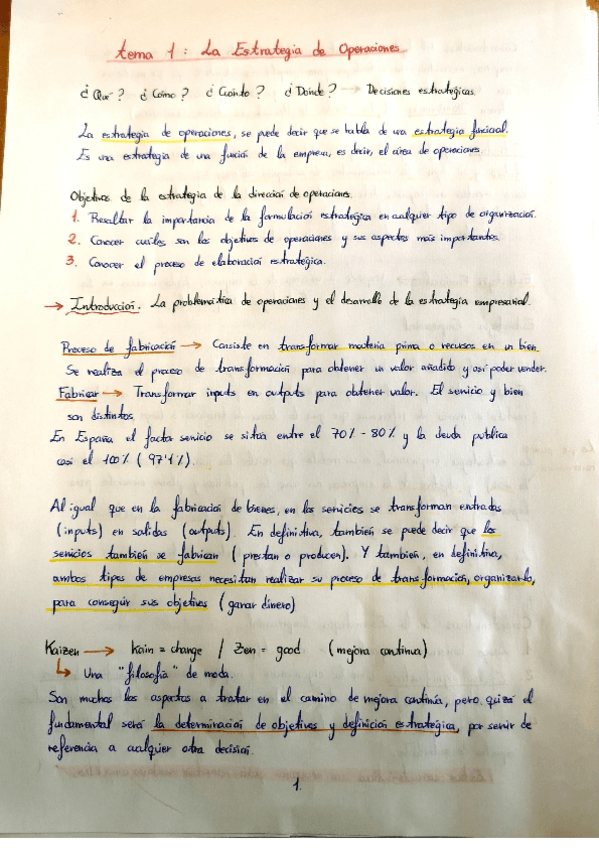 tema 1: La Estrategia de Operaciones
¿Qué? ¿Cómo? ¿Cuánto? ¿Dónde? → Decisiones estratégicas.
La estrategia de operaciones, se puede decir que se habla de una estrategia funcional.
Es una estrategia de una función de la empresa, es decir, el área de operaciones.
Objetivos de la estrategia de la dirección de operaciones.
1. Resaltar la importancia de la formulación estratégica en cualquier tipo de organización.
2. Conocer cuáles son los objetivos de operaciones y sus aspectos más importantes.
3. Conocer el proceso de elaboración estratégica.
→ Introducción. La problemática de operaciones y el desarrollo de la estrategia empresarial.
Proceso de fabricación → Consiste en transformar materia prima o recursos en un bien.
Se realiza el proceso de transformación para obtener un valor añadido y así poder vender.
Fabricar → Transformar inputs en outputs para obtener valor. El servicio y bien
son distintos.
En España el factor servicio se sitúa entre el 70% - 80% y la deuda pública
casi el 100% (97'1%).
Al igual que en la fabricación de bienes, en los servicios se transforman entradas
(inputs) en salidas (outputs). En definitiva, también se puede decir que los
servicios también se fabrican (prestan o producen). Y también, en definitiva,
ambos tipos de empresas necesitan realizar su proceso de transformación, organizarlo,
para conseguir sus objetivos (ganar dinero)
Kaizen → Kain = change / Zen = good (mejora continua)
↳ Una "filosofía" de moda.
Son muchos los aspectos a tratar en el camino de mejora continúa, pero quizá el
fundamental será la determinación de objetivos y definición estratégica, por servir de
referencia a cualquier otra decisión.
1.